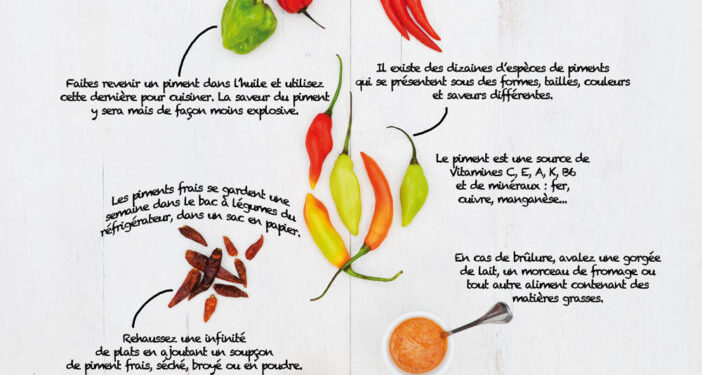 Faites revenir un piment dans l'huile et utilisez
cette dernière pour cuisiner. La saveur du piment
y sera mais de façon moins explosive.
Il existe des dizaines d'espèces de piments
qui se présentent sous des formes, tailles, couleurs
et saveurs différentes.
Le piment est une source de
Vitamines C, E, A, K, B6
et de minéraux : fer,
cuivre, manganèse...
Les piments frais se gardent une
semaine dans le bac à légumes du
réfrigérateur, dans un sac en papier.
En cas de brûlure, avalez une gorgée
de lait, un morceau de fromage ou
tout autre aliment contenant des
matières grasses.
Rehaussez une infinité
de plats en ajoutant un soupçon
de piment frais, séché, broyé ou en poudre.